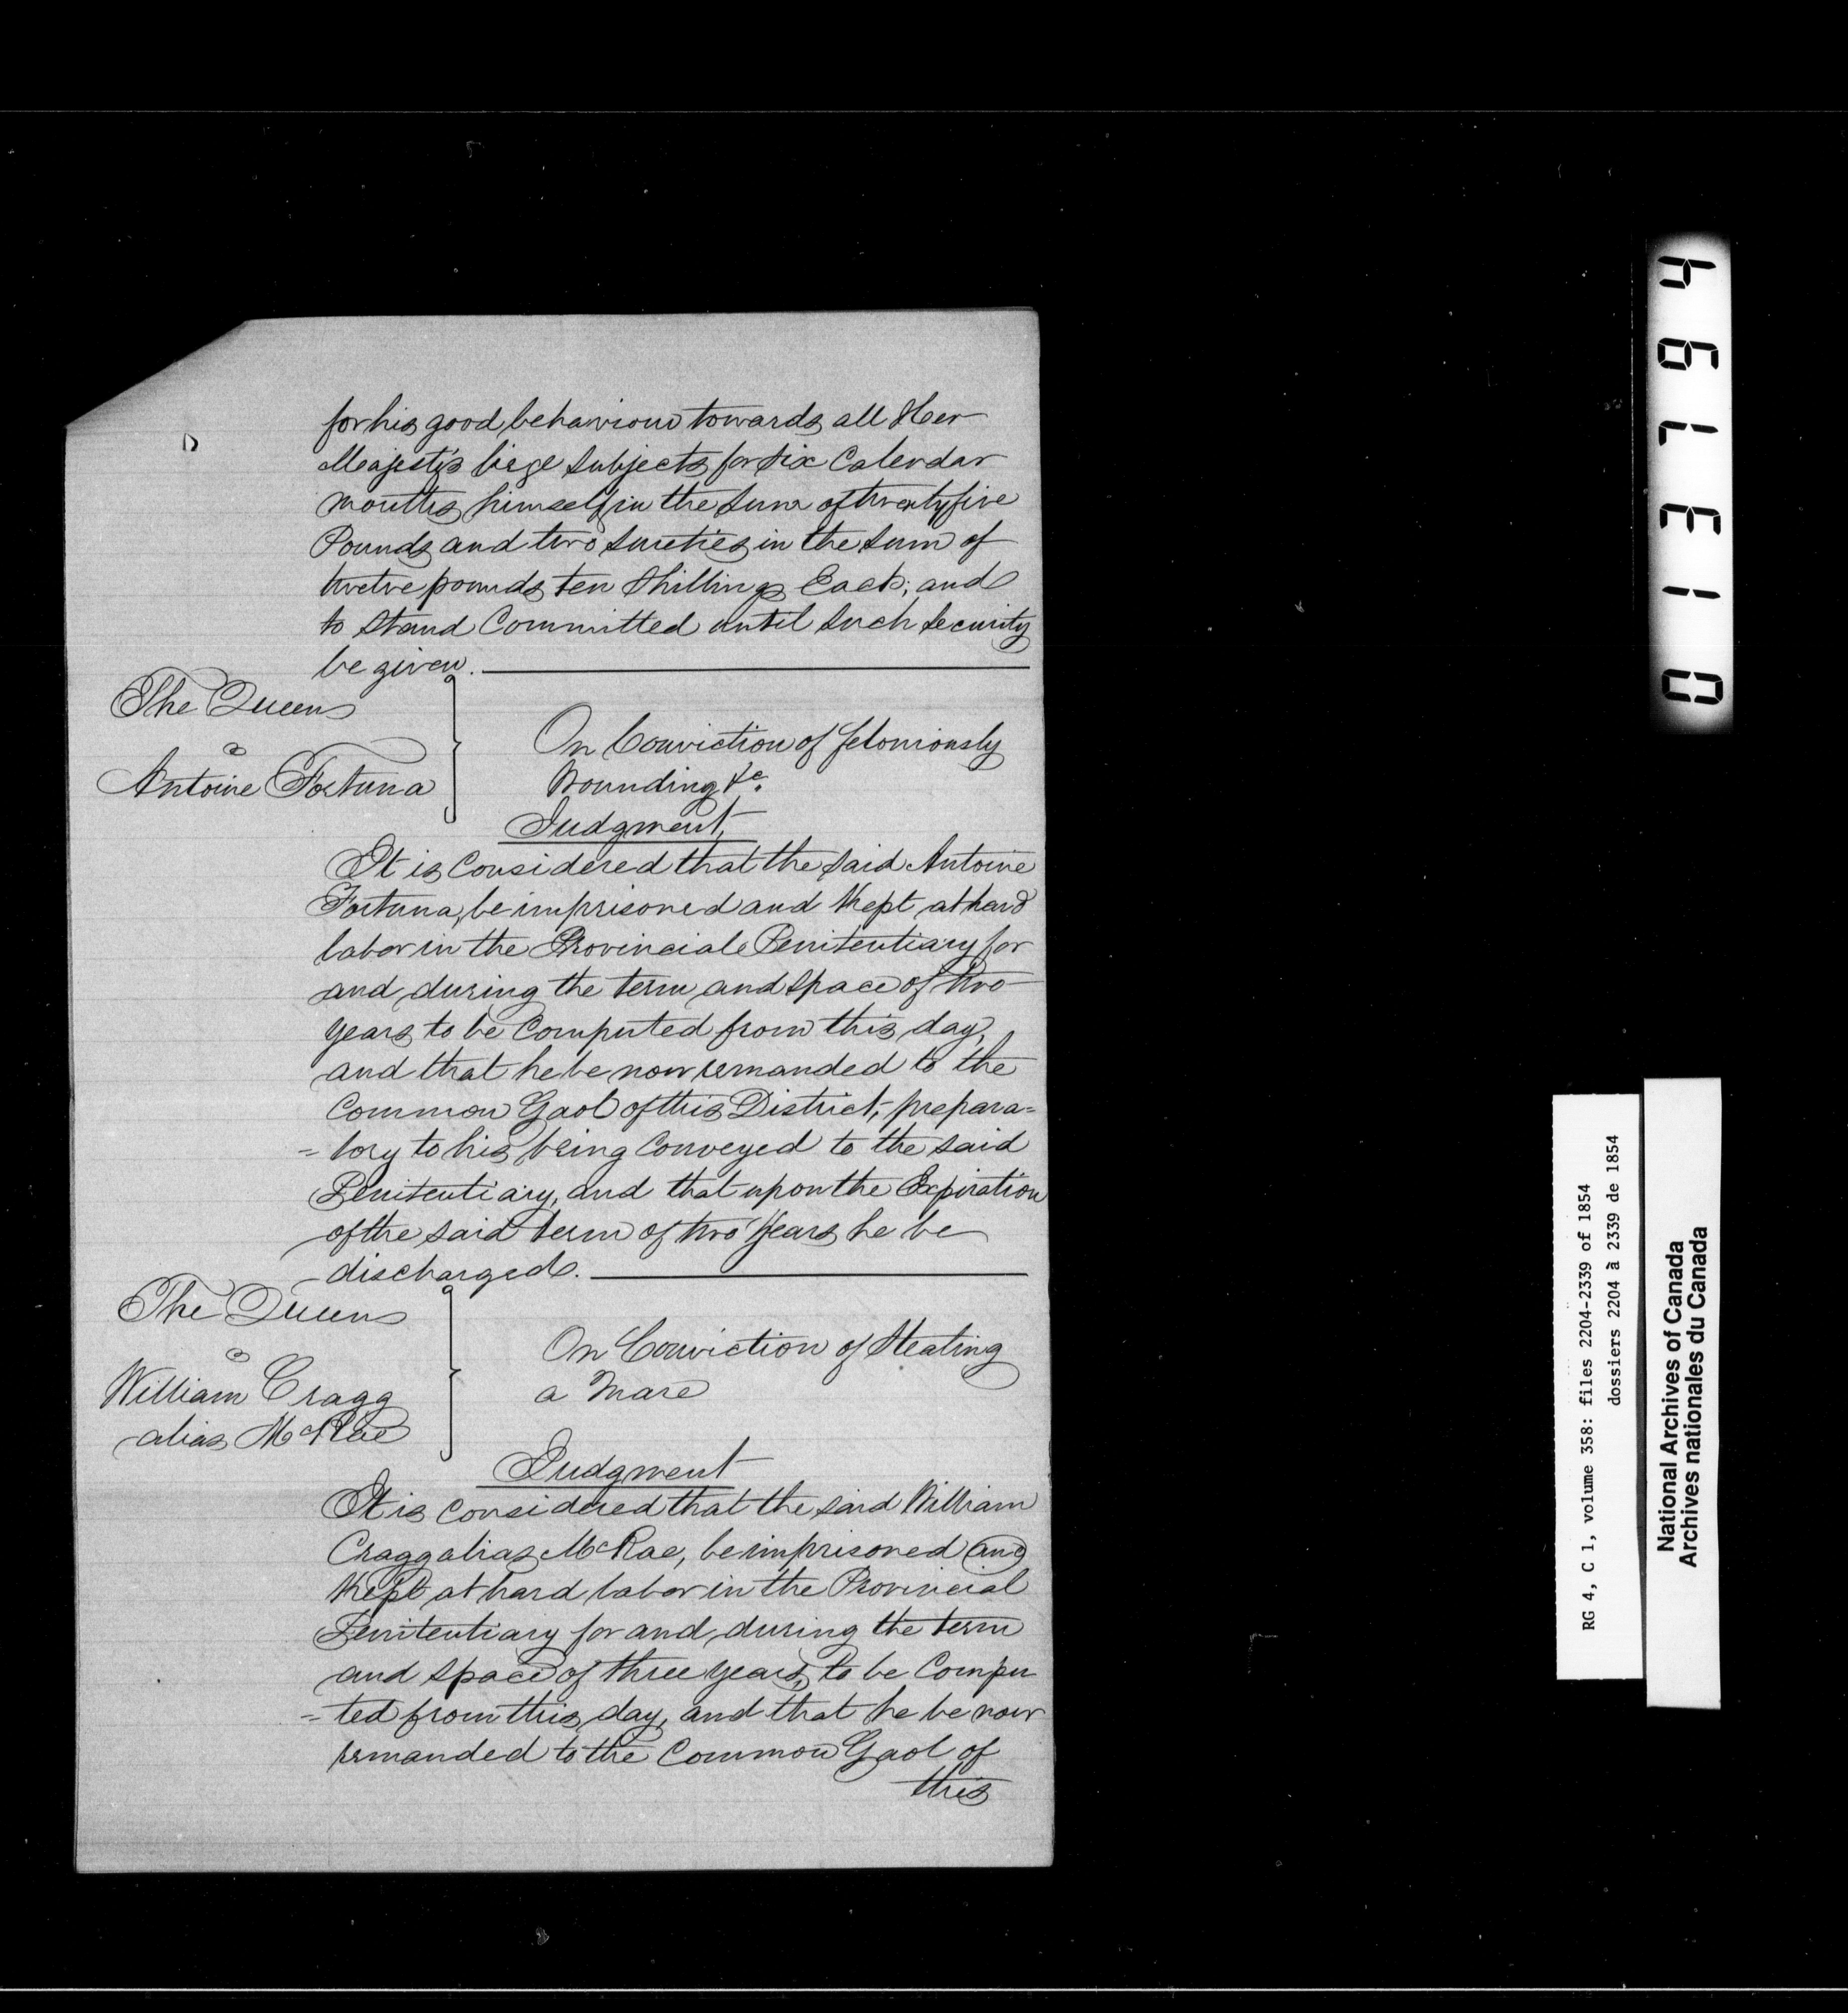 for his good behaviour towards all Her
Majesty's liege subjects for six Calendar
months, himself in the sum of twenty five
Pounds and two sureties in the sum of
twelve pounds ten Shillings Each; and
to stand Committed until such security
be given.
The Queen
vs
Antoine Fortuna
On Conviction of feloniously
Wounding &c.
Judgment,
It is Considered that the said Antoine
Fortuna, be imprisoned and Kept at hard
labor in the Provincial Penitentiary for
and during the term and space of two
years to be Computed from this day,
and that he be now remanded to the
Common Gaol of this District, prepara=
=tory to his being Conveyed to the said
Penitentiary, and that upon the Expiration
of the said term of two Years he be
discharged.
The Queen
vs
William Cragg
alias McRae
On Conviction of Stealing
a Mare
Judgment
It is Considered that the said William
Cragg alias McRae, be imprisoned and
Kept at hard labor in the Provincial
Penitentiary for and during the term
and space of three years, to be Compu
=ted from this day, and that he be now
remanded to the Common Gaol of
this
013164
RG 4, C 1, volume 358: files 2204-2339 of 1854
dossiers 2204 à 2339 de 1854
National Archives of Canada
Archives nationales du Canada